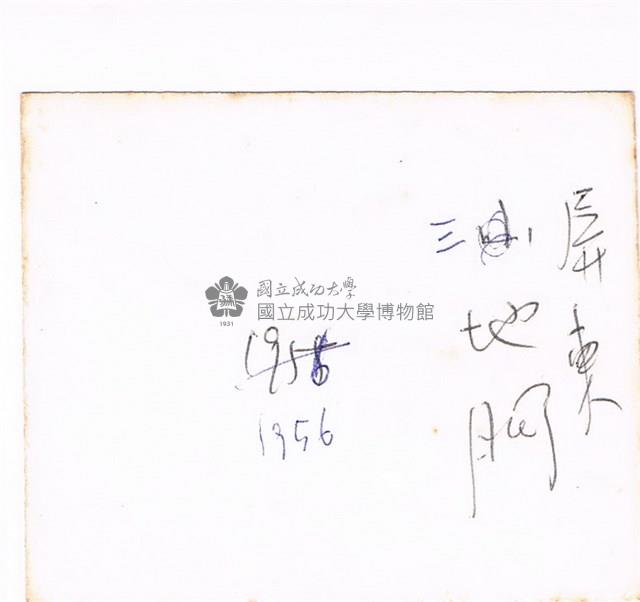 屏東
三地門
國立成功大學
國立成功大學博物館
1931
1956
1956